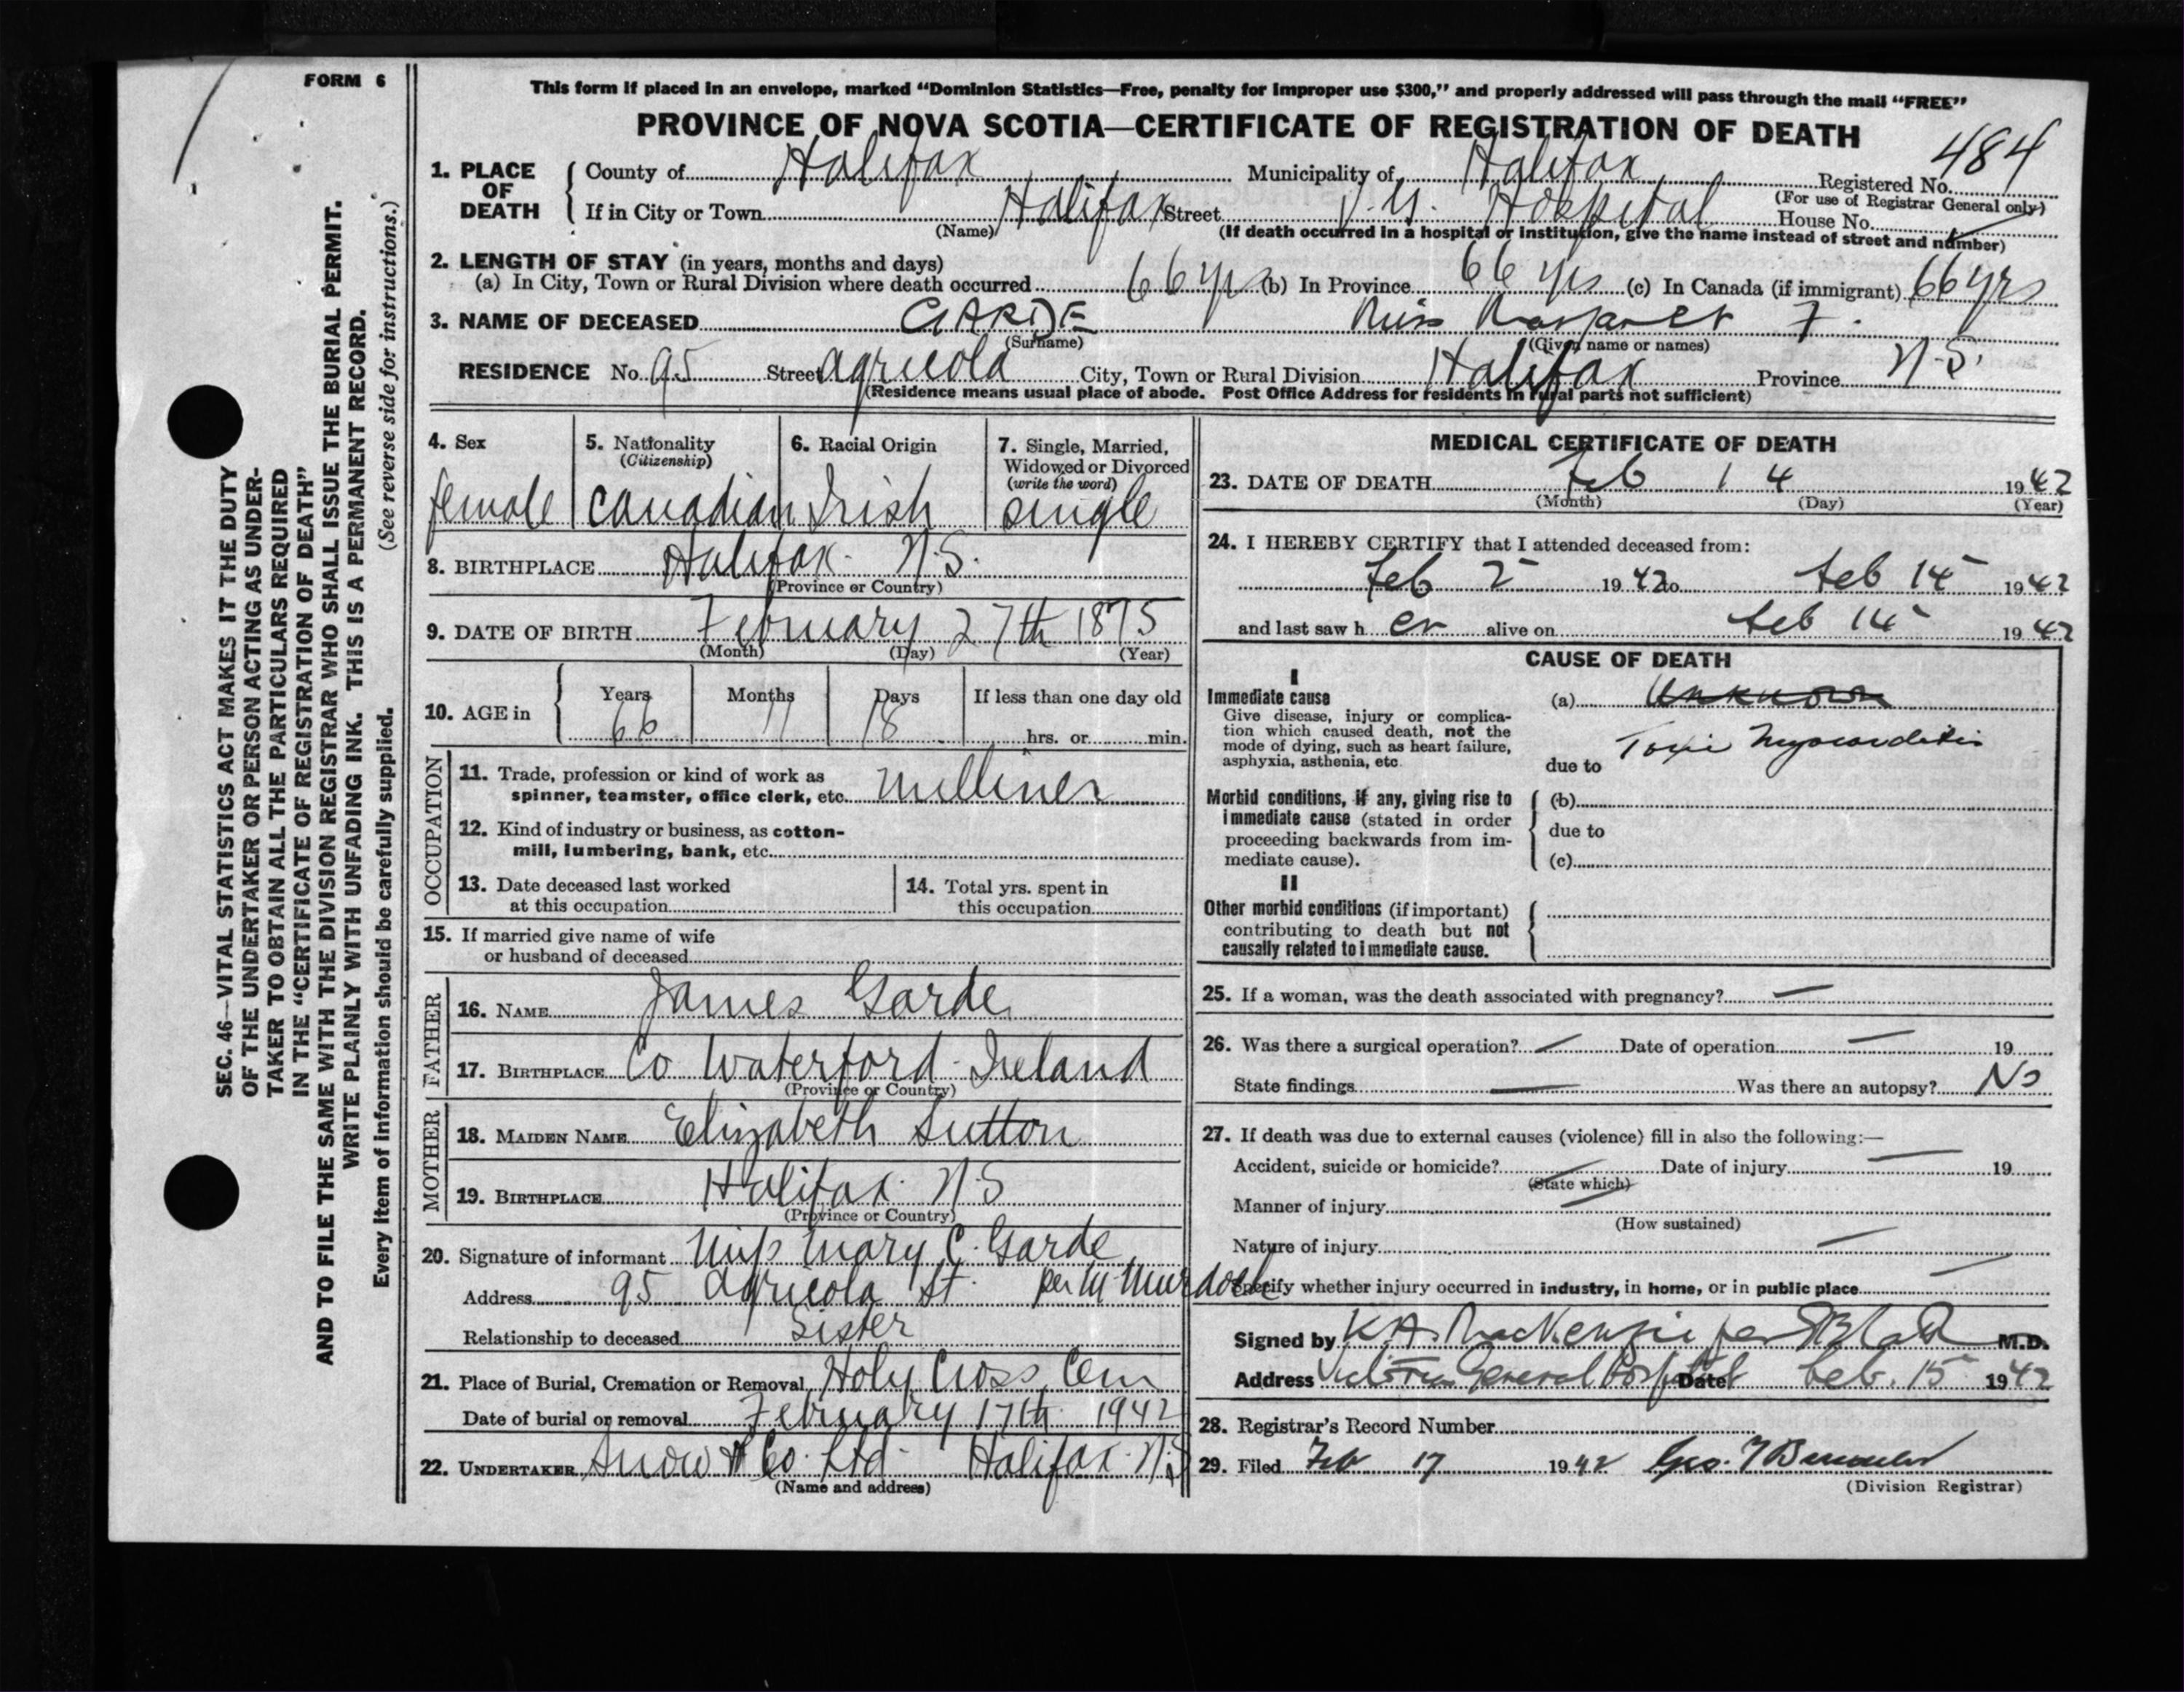 FORM 6
SEC. 46—VITAL STATISTICS ACT MAKES IT THE DUTY
OF THE UNDERTAKER OR PERSON ACTING AS UNDER-
TAKER TO OBTAIN ALL THE PARTICULARS REQUIRED
IN THE "CERTIFICATE OF REGISTRATION OF DEATH"
AND TO FILE THE SAME WITH THE DIVISION REGISTRAR WHO SHALL ISSUE THE BURIAL PERMIT.
WRITE PLAINLY WITH UNFADING INK. THIS IS A PERMANENT RECORD.
Every item of information should be carefully supplied. (See reverse side for instructions.)
This form if placed in an envelope, marked "Dominion Statistics—Free, penalty for improper use $300," and properly addressed will pass through the mail "FREE"
PROVINCE OF NOVA SCOTIA—CERTIFICATE OF REGISTRATION OF DEATH
1. PLACE OF DEATH County of Halifax Municipality of Halifax Registered No. 484
(For use of Registrar General only)
If in City or Town Halifax Street V.G. Hospital House No.
(Name) (If death occurred in a hospital or institution, give the name instead of street and number)
2. LENGTH OF STAY (in years, months and days)
(a) In City, Town or Rural Division where death occurred 66 yrs (b) In Province 66 yrs (c) In Canada (if immigrant) 66 yrs
3. NAME OF DECEASED GARDE Miss Margaret F.
(Surname) (Given name or names)
RESIDENCE No. 95 Street Agricola City, Town or Rural Division Halifax Province N.S.
(Residence means usual place of abode. Post Office Address for residents in rural parts not sufficient)
4. Sex
female
5. Nationality
(Citizenship)
Canadian
6. Racial Origin
Irish
7. Single, Married,
Widowed or Divorced
(write the word)
single
8. BIRTHPLACE Halifax N.S.
(Province or Country)
9. DATE OF BIRTH February 27th 1875
(Month) (Day) (Year)
10. AGE in Years Months Days If less than one day old
66 11 18 hrs. or min.
OCCUPATION
11. Trade, profession or kind of work as
spinner, teamster, office clerk, etc. milliner
12. Kind of industry or business, as cotton-
mill, lumbering, bank, etc.
13. Date deceased last worked
at this occupation
14. Total yrs. spent in
this occupation
15. If married give name of wife
or husband of deceased
FATHER
16. NAME James Garde
17. BIRTHPLACE Co Waterford Ireland
(Province or Country)
MOTHER
18. MAIDEN NAME Elizabeth Sutton
19. BIRTHPLACE Halifax N.S
(Province or Country)
20. Signature of informant Miss Mary C. Garde
Address 95 Agricola St. per M Murdoch
Relationship to deceased Sister
21. Place of Burial, Cremation or Removal Holy Cross Cem
Date of burial or removal February 17th 1942
22. UNDERTAKER Snow & Co. Ltd Halifax N.S
(Name and address)
MEDICAL CERTIFICATE OF DEATH
23. DATE OF DEATH Feb 14 1942
(Month) (Day) (Year)
24. I HEREBY CERTIFY that I attended deceased from:
Feb 2 1942 to Feb 14 1942
and last saw her alive on Feb 14 1942
CAUSE OF DEATH
I
Immediate cause
Give disease, injury or complica-
tion which caused death, not the
mode of dying, such as heart failure,
asphyxia, asthenia, etc.
(a) Unknown
due to Toxic Myocarditis
Morbid conditions, if any, giving rise to
immediate cause (stated in order
proceeding backwards from im-
mediate cause).
(b)
due to
(c)
II
Other morbid conditions (if important)
contributing to death but not
causally related to immediate cause.
25. If a woman, was the death associated with pregnancy? —
26. Was there a surgical operation? — Date of operation — 19
State findings — Was there an autopsy? No
27. If death was due to external causes (violence) fill in also the following:—
Accident, suicide or homicide? — Date of injury — 19
(State which)
Manner of injury —
(How sustained)
Nature of injury —
Specify whether injury occurred in industry, in home, or in public place —
Signed by K.A. MacKenzie per M.D.
Address Victoria General Hospital Date Feb. 15 1942
28. Registrar's Record Number
29. Filed Feb 17 1942 Geo.
(Division Registrar)